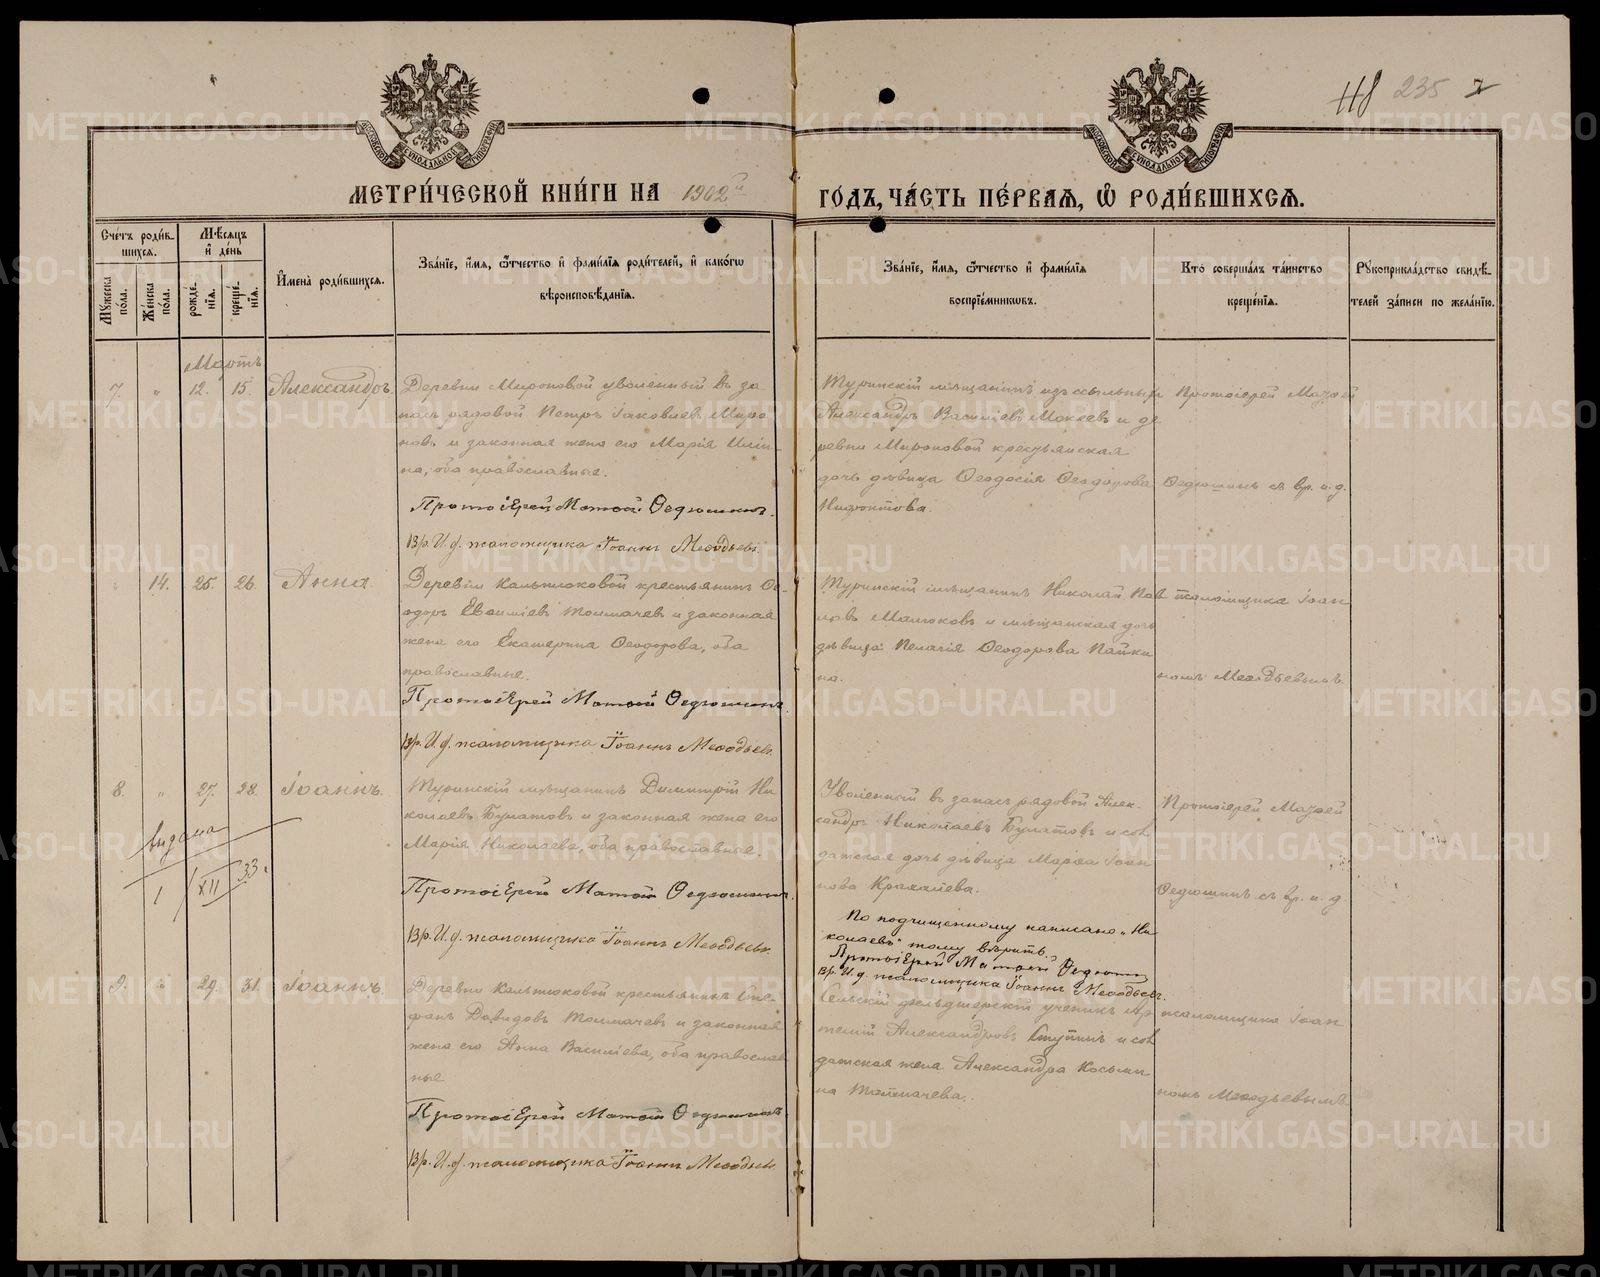 118 235 2
МЕТРИ́ЧЕСКОЙ КНИ́ГИ НА 1902й ГОДЪ, ЧА́СТЬ ПЕ́РВАѦ, Ѡ РОДИ́ВШИХСѦ.
Сче́тъ роди́в-
шихсѧ.
Мѣ́сѧцъ
и̂ де́нь
Му́жеска
пола.
Же́нска
пола.
рожде́-
нїѧ.
креще́-
нїѧ.
И̂мена̀ роди́вшихсѧ.
Зва́нїе, и́мѧ, ѻ́тчество и̂ фами́лїѧ роди́телей, и̂ како́гѡ
вѣроисповѣ́данїѧ.
Зва́нїе, и́мѧ, ѻ́тчество и̂ фами́лїѧ
воспрїе́мниковъ.
Кто̀ соверша́лъ та́инство
креще́нїѧ.
Рꙋкоприкла́дство свидѣ́-
телей за́писи по жела́нїю.
Мартъ
7. " 12. 15. Александръ.
Деревни Мироновой уволенный въ за
пасъ рядовой Петръ Іаковлевъ Миро
новъ и законная жена его Марія Ильи-
на, оба православные.
Протоіерей Матѳій Ѳедюшинъ.
Вр. И. д. псаломщика Іоаннъ Меѳодьевъ.
Туринскій мѣщанинъ изъ ссыльныхъ
Александръ Васильевъ Мокеевъ и де
ревни Мироновой крестьянская
дочь дѣвица Ѳеодосія Ѳеодорова
Нифонтова.
Протоіерей Матѳей
Ѳедюшинъ съ вр. и. д.
" 14. 25. 26. Анна.
Деревни Кальтюковой крестьянинъ Ѳе-
одоръ Евѳиміевъ Толмачевъ и законная
жена его Екатерина Ѳеодорова, оба
православные.
Протоіерей Матѳій Ѳедюшинъ.
Вр. И. д. псаломщика Іоаннъ Меѳодьевъ.
Туринскій мѣщанинъ Николай Пав
ловъ Малюковъ и мѣщанская дочь
дѣвица Пелагія Ѳеодорова Пайки
на.
псаломщика Іоан
номъ Меѳодьевымъ.
8. " 27. 28. Іоаннъ.
Туринскій мѣщанинъ Димитрій Ни
колаевъ Булатовъ и законная жена его
Марія Николаева, оба православные.
Протоіерей Матѳій Ѳедюшинъ.
Вр. И. д. псаломщика Іоаннъ Меѳодьевъ.
выдана
1/XII 33.
Уволенный въ запасъ рядовой Алек-
сандръ Николаевъ Булатовъ и сол
датская дочь дѣвица Марѳа Іоан
нова
Протоіерей Матѳей
Ѳедюшинъ съ вр. и. д.
По подчищенному написано „Ни
колаевъ" тому вѣрить.
Протоіерей Матѳій Ѳедюшинъ
Вр. И. д. псаломщика Іоаннъ Меѳодьевъ.
9. " 29. 31. Іоаннъ.
Деревни Кальтюковой крестьянинъ Сте-
фанъ Давидовъ Толмачевъ и законная
жена его Анна Васильева, оба православ
ные
Протоіерей Матѳій Ѳедюшинъ
Вр. И. д. псаломщика Іоаннъ Меѳодьевъ.
Сельскій фельдшерскій ученикъ Ар
темій Александровъ Ступинъ и сол
датская жена Александра Косьми
на Толмачева.
псаломщика Іоан
номъ Меѳодьевымъ
METRIKI.GASO-URAL.RU